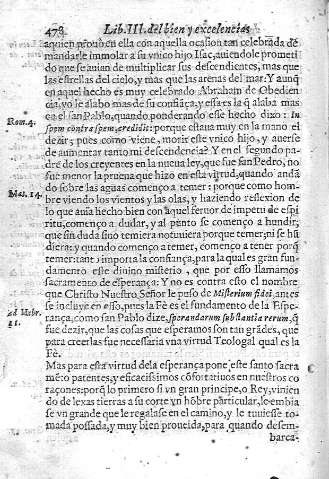 478 Lib. III. del bien y excelencias
aquien prouò en ella con aquella ocasion tan celebrada de
mandarle immolar a su vnico hijo Isac, auiendole prometi
do que se auian de multiplicar sus descendientes, mas que
las estrellas del cielo, y mas que las arenas del mar: Y aunq̃
en aquel hecho es muy celebrado Abraham de Obedien
cia, yo le alabo mas de su confiãça, y essa es la q̃ alaba mas
Rom. 4. en el san Pablo, quando ponderando esse hecho dixo: In
spem contra spem, credidit: porque estaua muy en la mano el
dezir, pues como viene, morir este vnico hijo, y auerse
de aumentar tanto mi descendencia? Y en el segundo pa
dre de los creyentes en la nueua ley, que fue san Pedro, no
fue menor la prueua que hizo en esta virtud, quando andã
Mat. 14. do sobre las aguas començo a temer: porque como hom
bre viendo los vientos y las olas, y haziendo reflexion de
lo que auia hecho bien con aquel feruor de impetu de espi
ritu, començo a dudar, y al punto se començo a hundir;
que sin duda sino temiera no tuuiera porque temer; ni se hũ
diera: y quando començo a temer, començo a tener porq̃
temer: tanto importa la confiança, para la qual es gran fun
damento este diuino misterio, que por esso llamamos
sacramento de esperança: Y no es contra esso el nombre
que Christo Nuestro Señor le puso de Misterium fidei, antes
se incluye en esso, pues la Fè es el fundamento de la Espe-
ad Hebr. rança, como san Pablo dize, sperandarum substantia rerum, q̃
11. fue dezir, que las cosas que esperamos son tan grãdes, que
para creerlas fue necessaria vna virtud Teologal qual es la
Fè.
Mas para esta virtud dela esperança pone este santo sacra
mẽto patentes, y eficacissimos cõfortatiuos en nuestros co
raçones: porq̃ lo primero si vn gran principe, o Rey, vinien
do de lexas tierras a su corte vn hõbre particular, le embia
se vn grande que le regalase en el camino, y le tuuiesse to-
mada possada, y muy bien proueida, para quando desem-
barca-